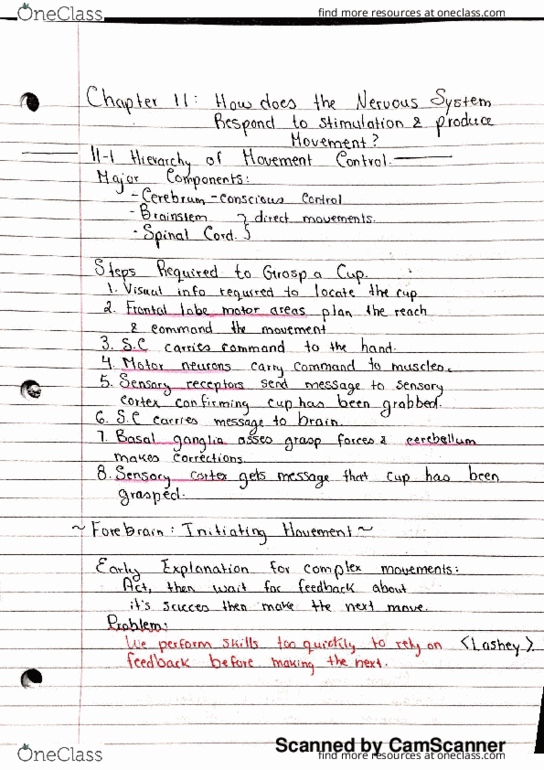 OneClass
find more resources at oneclass.com
Chapter 11: How does the Nervous System
Respond to stimulation & produce
Movement?
11-1 Hierarchy of Movement Control.
Major Components:
- Cerebrum - conscious control
- Brainstem } direct movements.
- Spinal Cord.
Steps Required to Grasp a Cup.
1. Visual info required to locate the cup
2. Frontal lobe motor areas plan the reach
& command the movement
3. S.C carries command to the hand.
4. Motor neurons carry command to muscles.
5. Sensory receptors send message to sensory
cortex confirming cup has been grabbed.
6. S.C carries message to brain.
7. Basal ganglia asses grasp forces & cerebellum
makes corrections.
8. Sensory cortex gets message that cup has been
grasped.
~ Forebrain: Initiating Movement ~
Early Explanation for complex movements:
Act, then wait for feedback about
it's succes then make the next move.
Problem:
We perform skills too quickly to rely on <Lashey>
feedback before making the next.
Scanned by CamScanner
OneClass
find more resources at oneclass.com